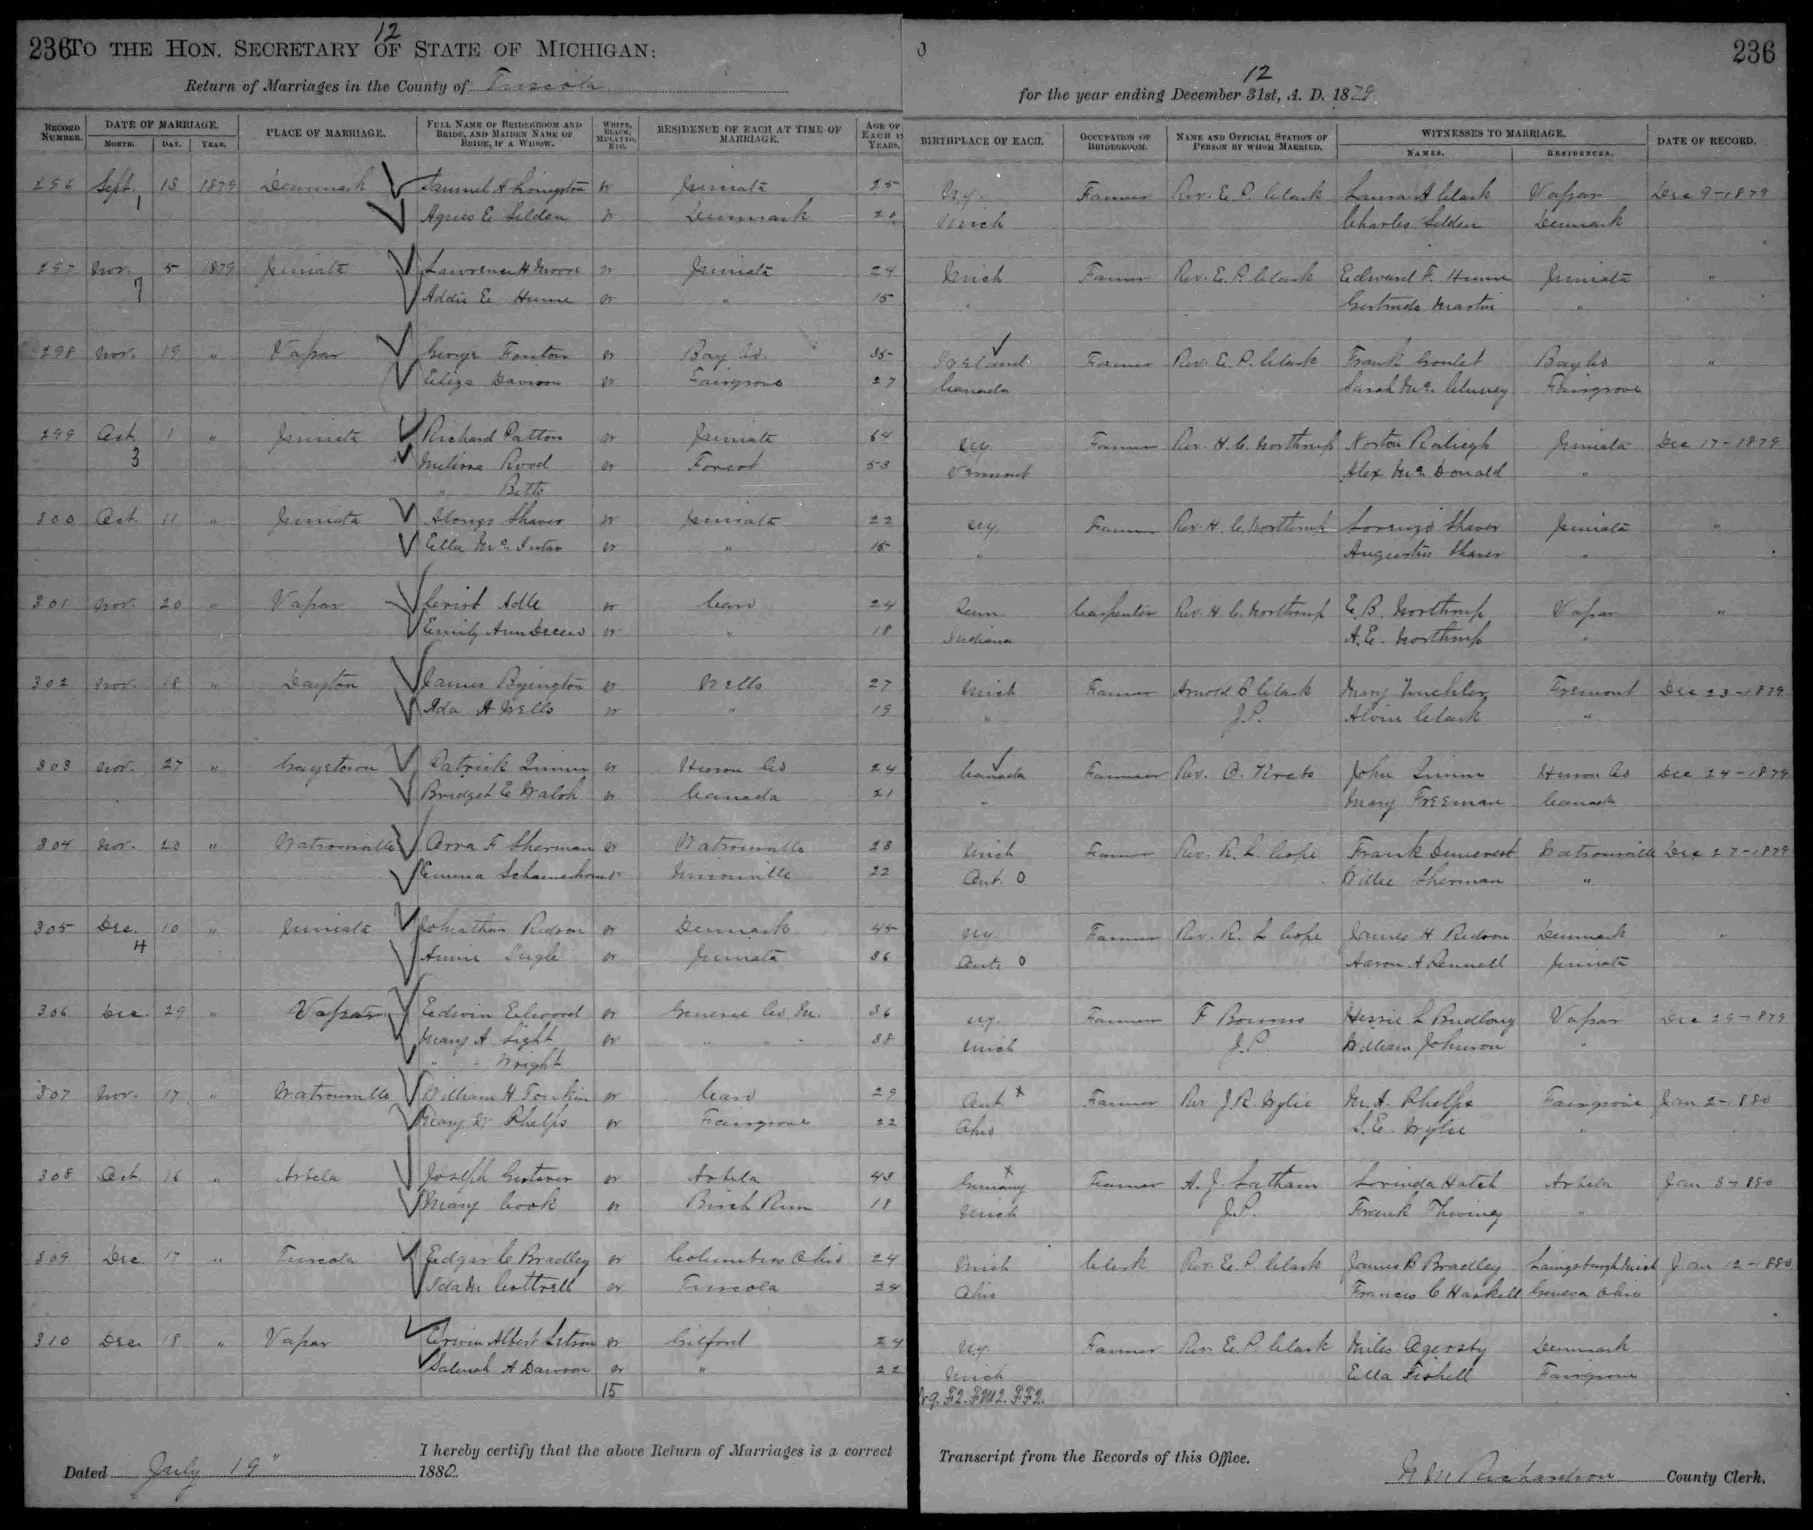 236 TO THE HON. SECRETARY OF STATE OF MICHIGAN: 12
Return of Marriages in the County of Tuscola
12 236
for the year ending December 31st, A. D. 1879
RECORD NUMBER. DATE OF MARRIAGE. MONTH. DAY. YEAR. PLACE OF MARRIAGE. FULL NAME OF BRIDEGROOM AND BRIDE, AND MAIDEN NAME OF BRIDE, IF A WIDOW. WHITE, BLACK, MULATTO, ETC. RESIDENCE OF EACH AT TIME OF MARRIAGE. AGE OF EACH IN YEARS. BIRTHPLACE OF EACH. OCCUPATION OF BRIDEGROOM. NAME AND OFFICIAL STATION OF PERSON BY WHOM MARRIED. WITNESSES TO MARRIAGE. NAMES. RESIDENCES. DATE OF RECORD.
296 Sept. 13 1879 Denmark Samuel A Livingston W Juniata 25 N.Y. Farmer Rev. E. P. Clark Laura A Clark Vassar Dec 9-1879
1 Agnes E Selden W Denmark 20 Mich Charles Selden Denmark
297 Nov. 5 1879 Juniata Lawrence H Moore W Juniata 24 Mich Farmer Rev. E. P. Clark Edward F. Hume Juniata "
7 Addie E Hume W " 15 " Gertrude Martin "
298 Nov. 19 " Vassar George Fenton W Bay Co. 35 Ireland Farmer Rev. E. P. Clark Frank Goulet Bay Co "
Eliza Davison W Fairgrove 27 Canada Sarah Mc Cluney Fairgrove
299 Oct. 1 " Juniata Richard Patton W Juniata 64 N.Y. Farmer Rev. H. C. Northrup Norton Raleigh Juniata Dec 17-1879
3 Melissa Rood W Forest 53 Vermont Alex Mc Donald "
" Betts
300 Oct. 11 " Juniata Alonzo Shaver W Juniata 22 N.Y. Farmer Rev. H. C. Northrup Lorenzo Shaver Juniata "
Ella Mc Intar W " 15 " Augustus Shaver "
301 Nov. 20 " Vassar Adle W Caro 24 Penn. Carpenter Rev. H. C. Northrup E. B. Northrup Vassar "
Emily Ann W " 18 Indiana A. E. Northrup "
302 Nov. 18 " Dayton James Byington W Wells 27 Mich Farmer Arnold B Clark Mary Fremont Dec 23-1879
Ada A Wells W " 19 " J.P. Alvin Clark "
303 Nov. 27 " Gagetown Patrick Quinn W Huron Co 24 Canada Farmer Rev. C. John Quinn Huron Co Dec 24-1879
Bridget E Walsh W Canada 21 " Mary Freeman Canada
304 Nov. 20 " Watrousville Orra F Sherman W Watrousville 23 Mich Farmer Rev. R. L. Cope Frank Demerest Watrousville Dec 27-1879
Emma Schamehorn W Unionville 22 Ont. O Willie Sherman "
305 Dec. 10 " Juniata Johnathan Rudson W Denmark 45 N.Y. Farmer Rev. R. L Cope James H Rudson Denmark "
4 Annie Ingle W Juniata 36 Ont. O Aaron A Juniata
306 Dec. 29 " Vassar Edwin Elwood W Genesee Co. M. 36 N.Y. Farmer F Bourns L Budlong Vassar Dec 29-1879
Mary A Light W " " " 38 Mich J.P. William Johnson "
" " Wright
307 Nov. 17 " Watrousville William H Tomkin W Caro 29 Ont. x Farmer Rev J. R. Wylie M. A. Phelps Fairgrove Jan 2-1880
Mary W Phelps W Fairgrove 22 Ohio S. E. Wylie "
308 Oct. 16 " Arbela Joseph W Arbela 43 Germany x Farmer A. J. Latham Lorinda Hatch Arbela Jan 3-1880
Mary Cook W Birch Run 18 Mich J.P. Frank Thwing "
309 Dec. 17 " Tuscola Edgar C Bradley W Columbus Ohio 24 Mich Clerk Rev. E. P. Clark James B Bradley Laingsburgh Mich Jan 12-1880
Ida M Cottrell W Tuscola 24 Ohio Francis C Haskell Geneva Ohio
310 Dec. 18 " Vassar Erwin Albert Letson W Gilford 24 N.Y. Farmer Rev E. P. Clark Miles Denmark
A Dawson W " 22 Mich Ella Fishell Fairgrove
15
I hereby certify that the above Return of Marriages is a correct Transcript from the Records of this Office.
Dated July 19" 1880 Richardson County Clerk.